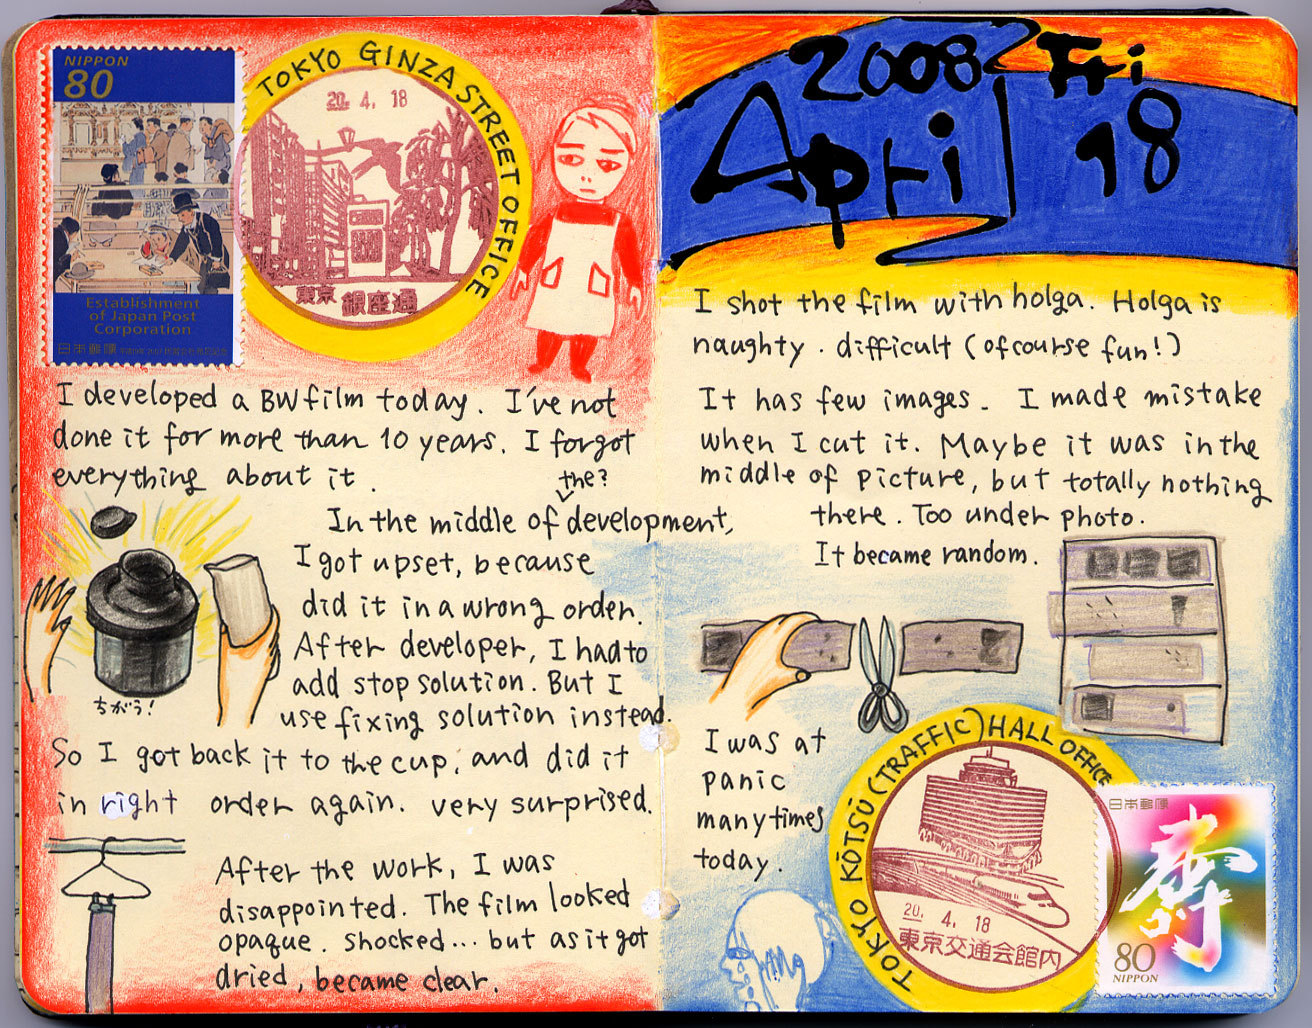 NIPPON
80
Establishment
of Japan Post
Corporation
日本郵便
TOKYO GINZA STREET OFFICE
20. 4. 18
東京 銀座通
I developed a BW film today. I've not
done it for more than 10 years. I forgot
everything about it.
the?
In the middle of development,
I got upset, because
did it in a wrong order.
After developer, I had to
add stop solution. But I
use fixing solution instead.
ちがう!
So I got back it to the cup, and did it
in right order again. very surprised.
After the work, I was
disappointed. The film looked
opaque. Shocked... but as it got
dried, became clear.
2008 Fri
April 18
I shot the film with holga. Holga is
naughty. difficult (ofcourse fun!)
It has few images. I made mistake
when I cut it. Maybe it was in the
middle of picture, but totally nothing
there. Too under photo.
It became random.
I was at
panic
many times
today.
TOKYO KŌTSŪ (TRAFFIC) HALL OFFICE
20. 4. 18
東京交通会館内
日本郵便
寿
80
NIPPON